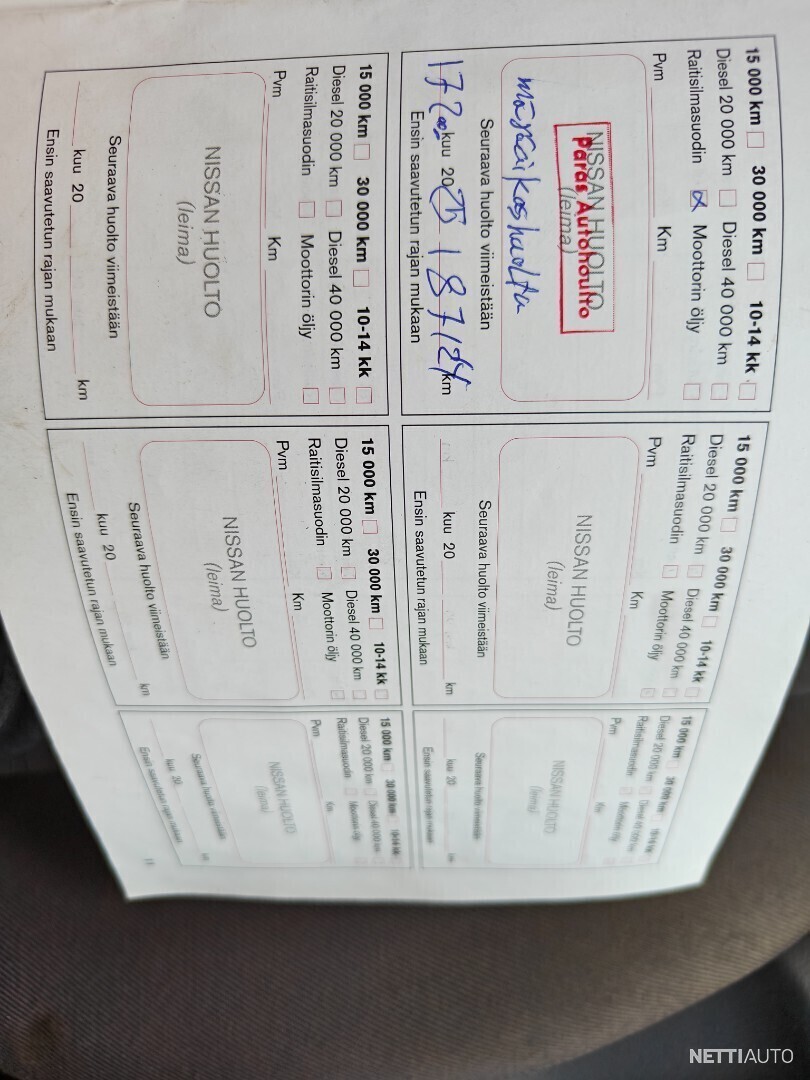 15 000 km 30 000 km 10-14 kk
Diesel 20 000 km Diesel 40 000 km
Raitisilmasuodin Moottorin öljy
Pvm Km
NISSAN HUOLTO
(leima)
Paras Autohuolto
määräaikashuolto
Seuraava huolto viimeistään
kuu 20 25 187124 km
Ensin saavutetun rajan mukaan
15 000 km 30 000 km 10-14 kk
Diesel 20 000 km Diesel 40 000 km
Raitisilmasuodin Moottorin öljy
Pvm Km
NISSAN HUOLTO
(leima)
Seuraava huolto viimeistään
kuu 20 km
Ensin saavutetun rajan mukaan
15 000 km 30 000 km 10-14 kk
Diesel 20 000 km Diesel 40 000 km
Raitisilmasuodin Moottorin öljy
Pvm Km
NISSAN HUOLTO
(leima)
Seuraava huolto viimeistään
kuu 20 km
Ensin saavutetun rajan mukaan
15 000 km 30 000 km 10-14 kk
Diesel 20 000 km Diesel 40 000 km
Raitisilmasuodin Moottorin öljy
Pvm Km
NISSAN HUOLTO
(leima)
Seuraava huolto viimeistään
kuu 20 km
Ensin saavutetun rajan mukaan
15 000 km 30 000 km 10-14 kk
Diesel 20 000 km Diesel 40 000 km
Raitisilmasuodin Moottorin öljy
Pvm Km
NISSAN HUOLTO
(leima)
Seuraava huolto viimeistään
kuu 20 km
Ensin saavutetun rajan mukaan
15 000 km 30 000 km 10-14 kk
Diesel 20 000 km Diesel 40 000 km
Raitisilmasuodin Moottorin öljy
Pvm Km
NISSAN HUOLTO
(leima)
Seuraava huolto viimeistään
kuu 20 km
Ensin saavutetun rajan mukaan
NETTIAUTO